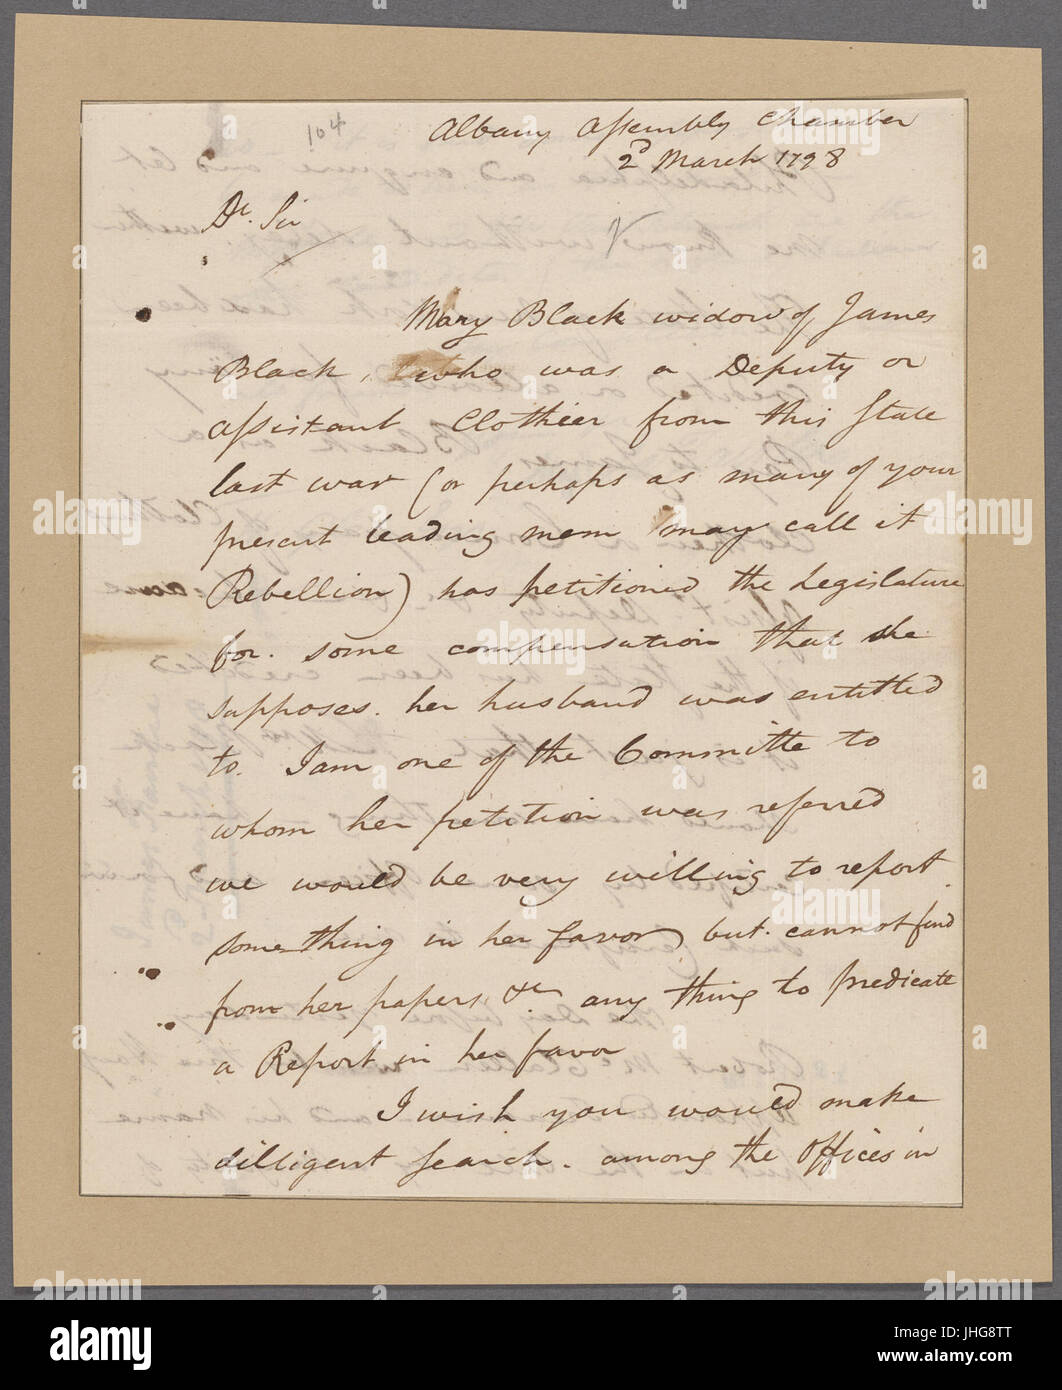 104
Albany Assembly Chamber
2d March 1798
Dr. Sir
Mary Black widow of James
Black, who was a Deputy or
assistant Clothier from this State
last war (or perhaps as many of your
present leading mem may call it
Rebellion) has petitioned the Legislature
for. some compensation that she
supposes. her husband was entitled
to. I am one of the Committe to
whom her petition was referred
we would be very willing to report
something in her favor, but. cannot find
from her papers &c any thing to predicate
a Report in her favor
I wish you would make
dilligent search. among the offices in
alamy
Image ID: JHG8TT
www.alamy.com